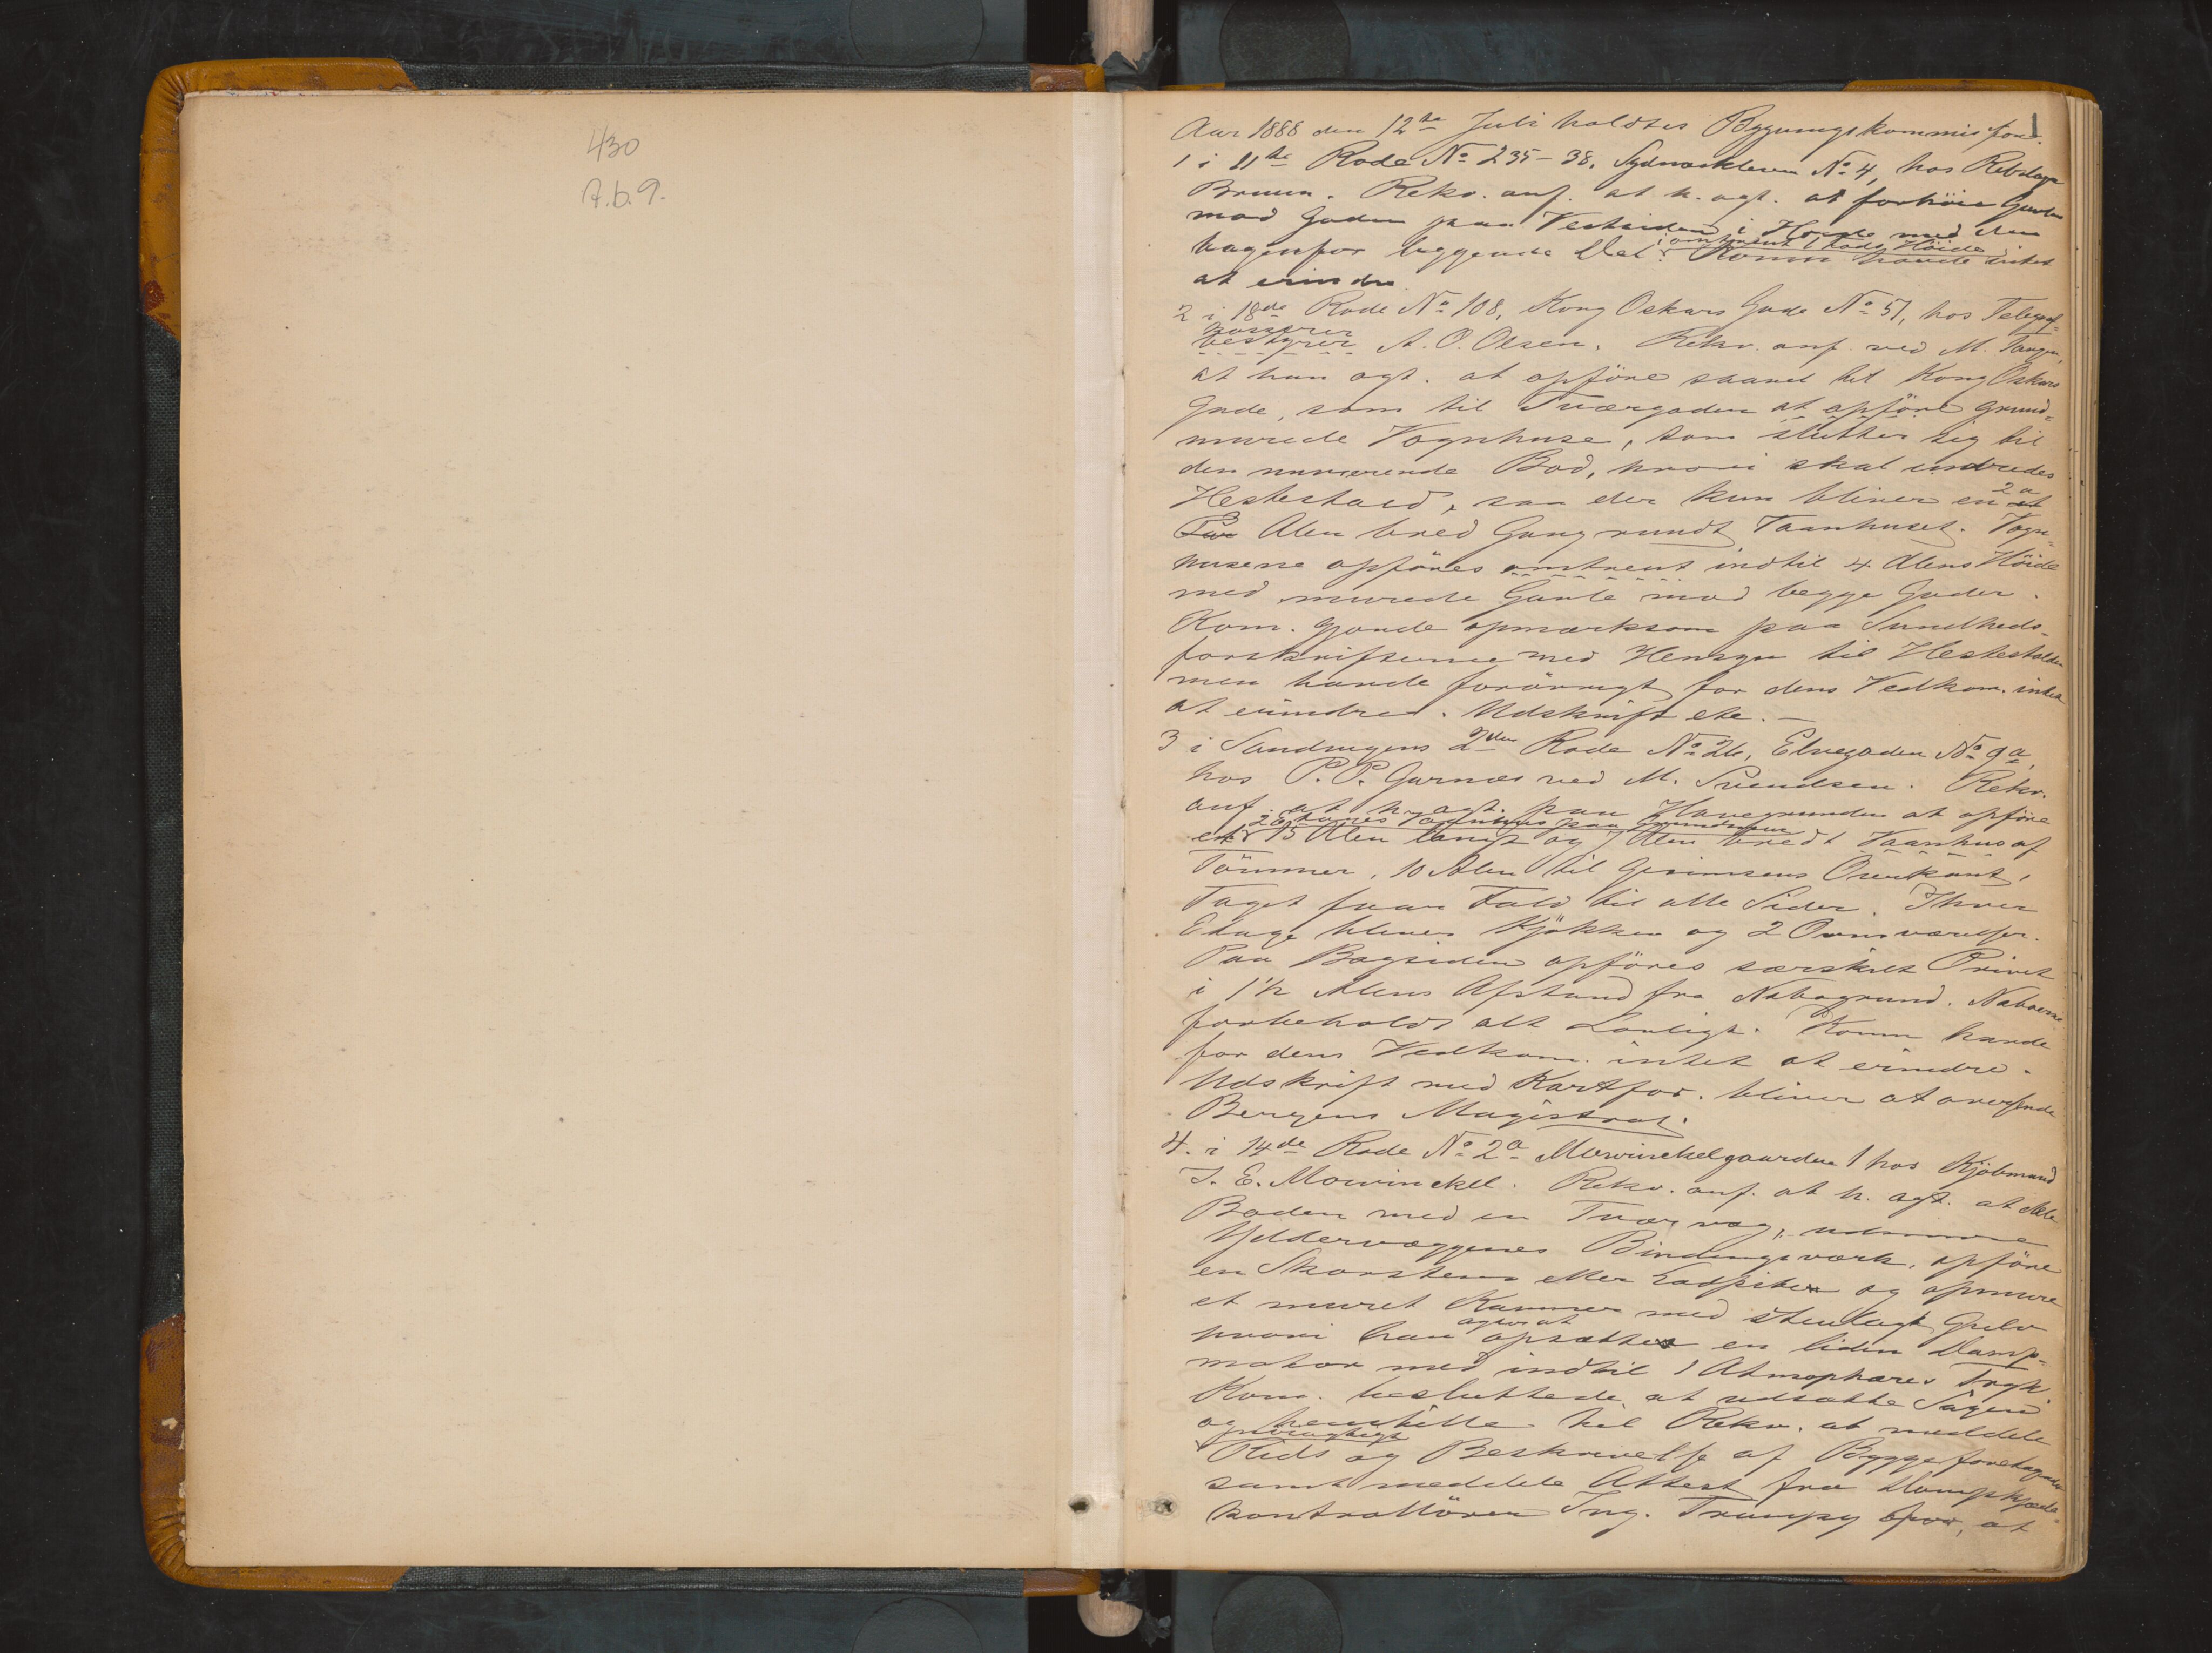 430
A.b.9.
1
Aar 1888 den 12te Juli holdtes Bygningskommission
1 i 11te Rode No 235-38, Sydnæskleven No 4, hos Rebslager
Bruun. Rekv. anf. at h. agt. at forhöie Gavlen
mod Gaden paa Vestsiden i Höide med den
bagenfor liggende Del. Komm havde intet
omtrent 1 Fods Höide
at erindre
2 i 18de Rode No 108, Kong Oskars Gade No 51, hos Telegraf-
bestyrer A. O. Olsen. Rekv. anf. ved M. Tangen,
kasserer
at han agt. at opföre saavel til Kong Oskars
Gade, som til Tværgaden at opföre grund-
murede Vognhuse, som slutter sig til
den nuværende Bod, hvori skal indredes
Hestestald, saa der kun bliver en et 2 a
Par 3 Alen bred Gang rundt Vaanhuset. Vogn-
husene opföres omtrent indtil 4 Alens Höide
med murede Gavle mod begge Gader.
Kom. gjorde opmærksom paa Sundheds-
forskrifterne med Hensyn til Hestestalden
men havde forövrigt for dens Vedkom. intet
at erindre. Udskrift etc. —
3 i Sandvigens 2den Rode No 26, Elvegaden No 9a,
hos P. P. Garnæs ved M. Svendsen. Rekv.
anf. at h. agt. paa Havegrunden at opföre
2 Etages Vaanhus paa Grundmur
et 15 Alen langt og 7 Alen bredt Vaanhus af
Tömmer, 10 Alen til Gesimsens Overkant,
Taget faar Fald til alle Sider. I hver
Etage bliver Kjökken og 2 Ovnsværelser.
Paa Bagsiden opföres særskilt Privet
i 1½ Alens Afstand fra Nabogrund. Naboerne
forbeholdt alt Lovligt. Komm havde
for dens Vedkom. intet at erindre.
Udskrift med Kartfor. bliver at oversende
Bergens Magistrat.
4. i 14de Rode No 2a Mowinckelgaarden 1 hos Kjöbmand
J. E. Mowinckel. Rekv. anf. at h. agt. at dele
Boden med en Tværvæg, udmure
Ydervæggenes Bindingsværk, opföre
en Skorsten eller Ladpibe og opmure
et muret Kammer med stenlagt Gulv
hvori han agter at opsætte en liden Damp-
motor med indtil 1 Atmosphæres Tryk.
Kom. besluttede at udsætte Sagen
og henstille til Rekv. at meddele
nöiagtigt
Rids og Beskrivelse af Byggeforetagendet
samt meddele Attest fra Dampkjædel-
kontrollören Ing. Trumpy for, at